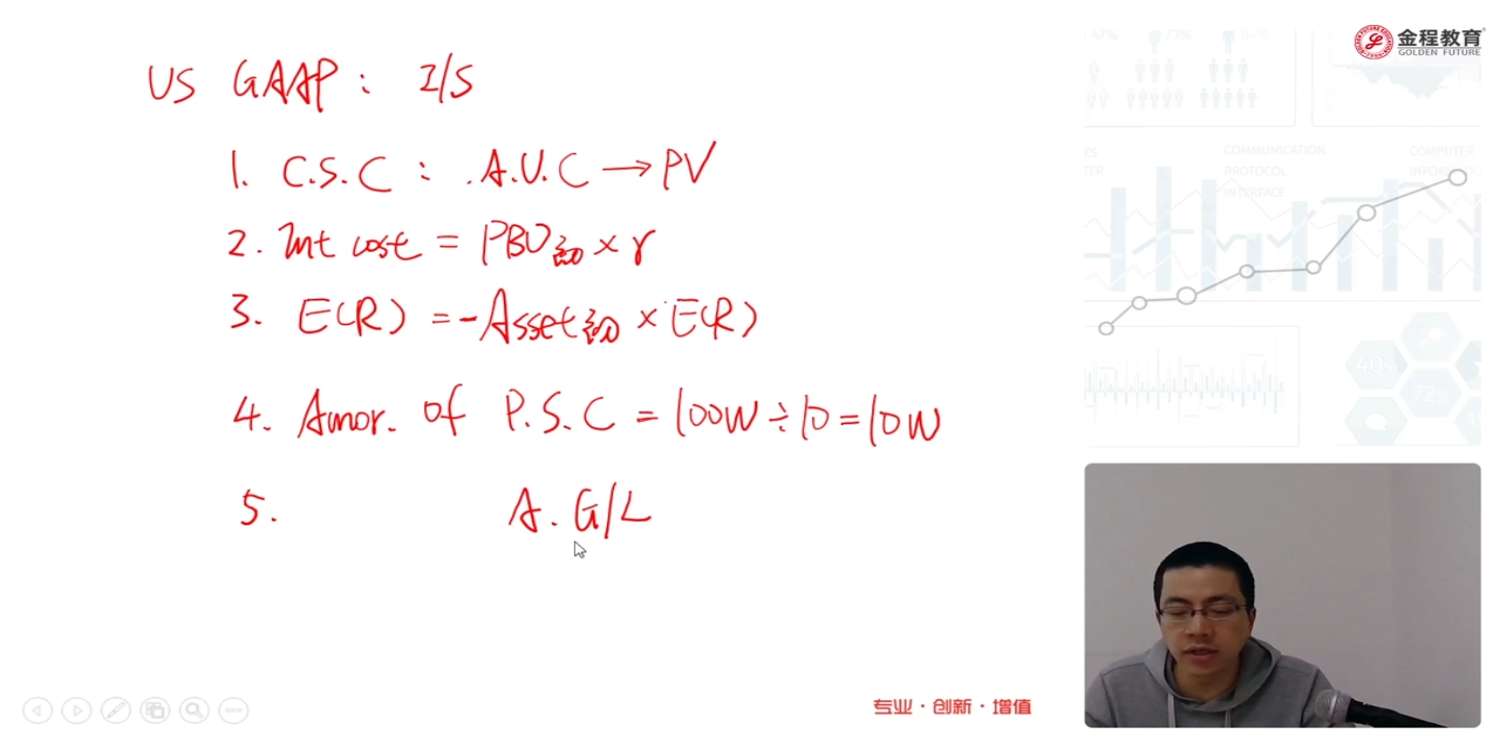 金程教育
GOLDEN FUTURE
US GAAP : I/S
1. C.S.C : A.U.C → PV
2. Int cost = PBO初 × r
3. E(R) = -Asset初 × E(R)
4. Amor. of P.S.C = 100W ÷ 10 = 10W
5. A. G/L
COMMUNICATION
PROTOCOL
INTERFACE
COMPUTER
专业·创新·增值